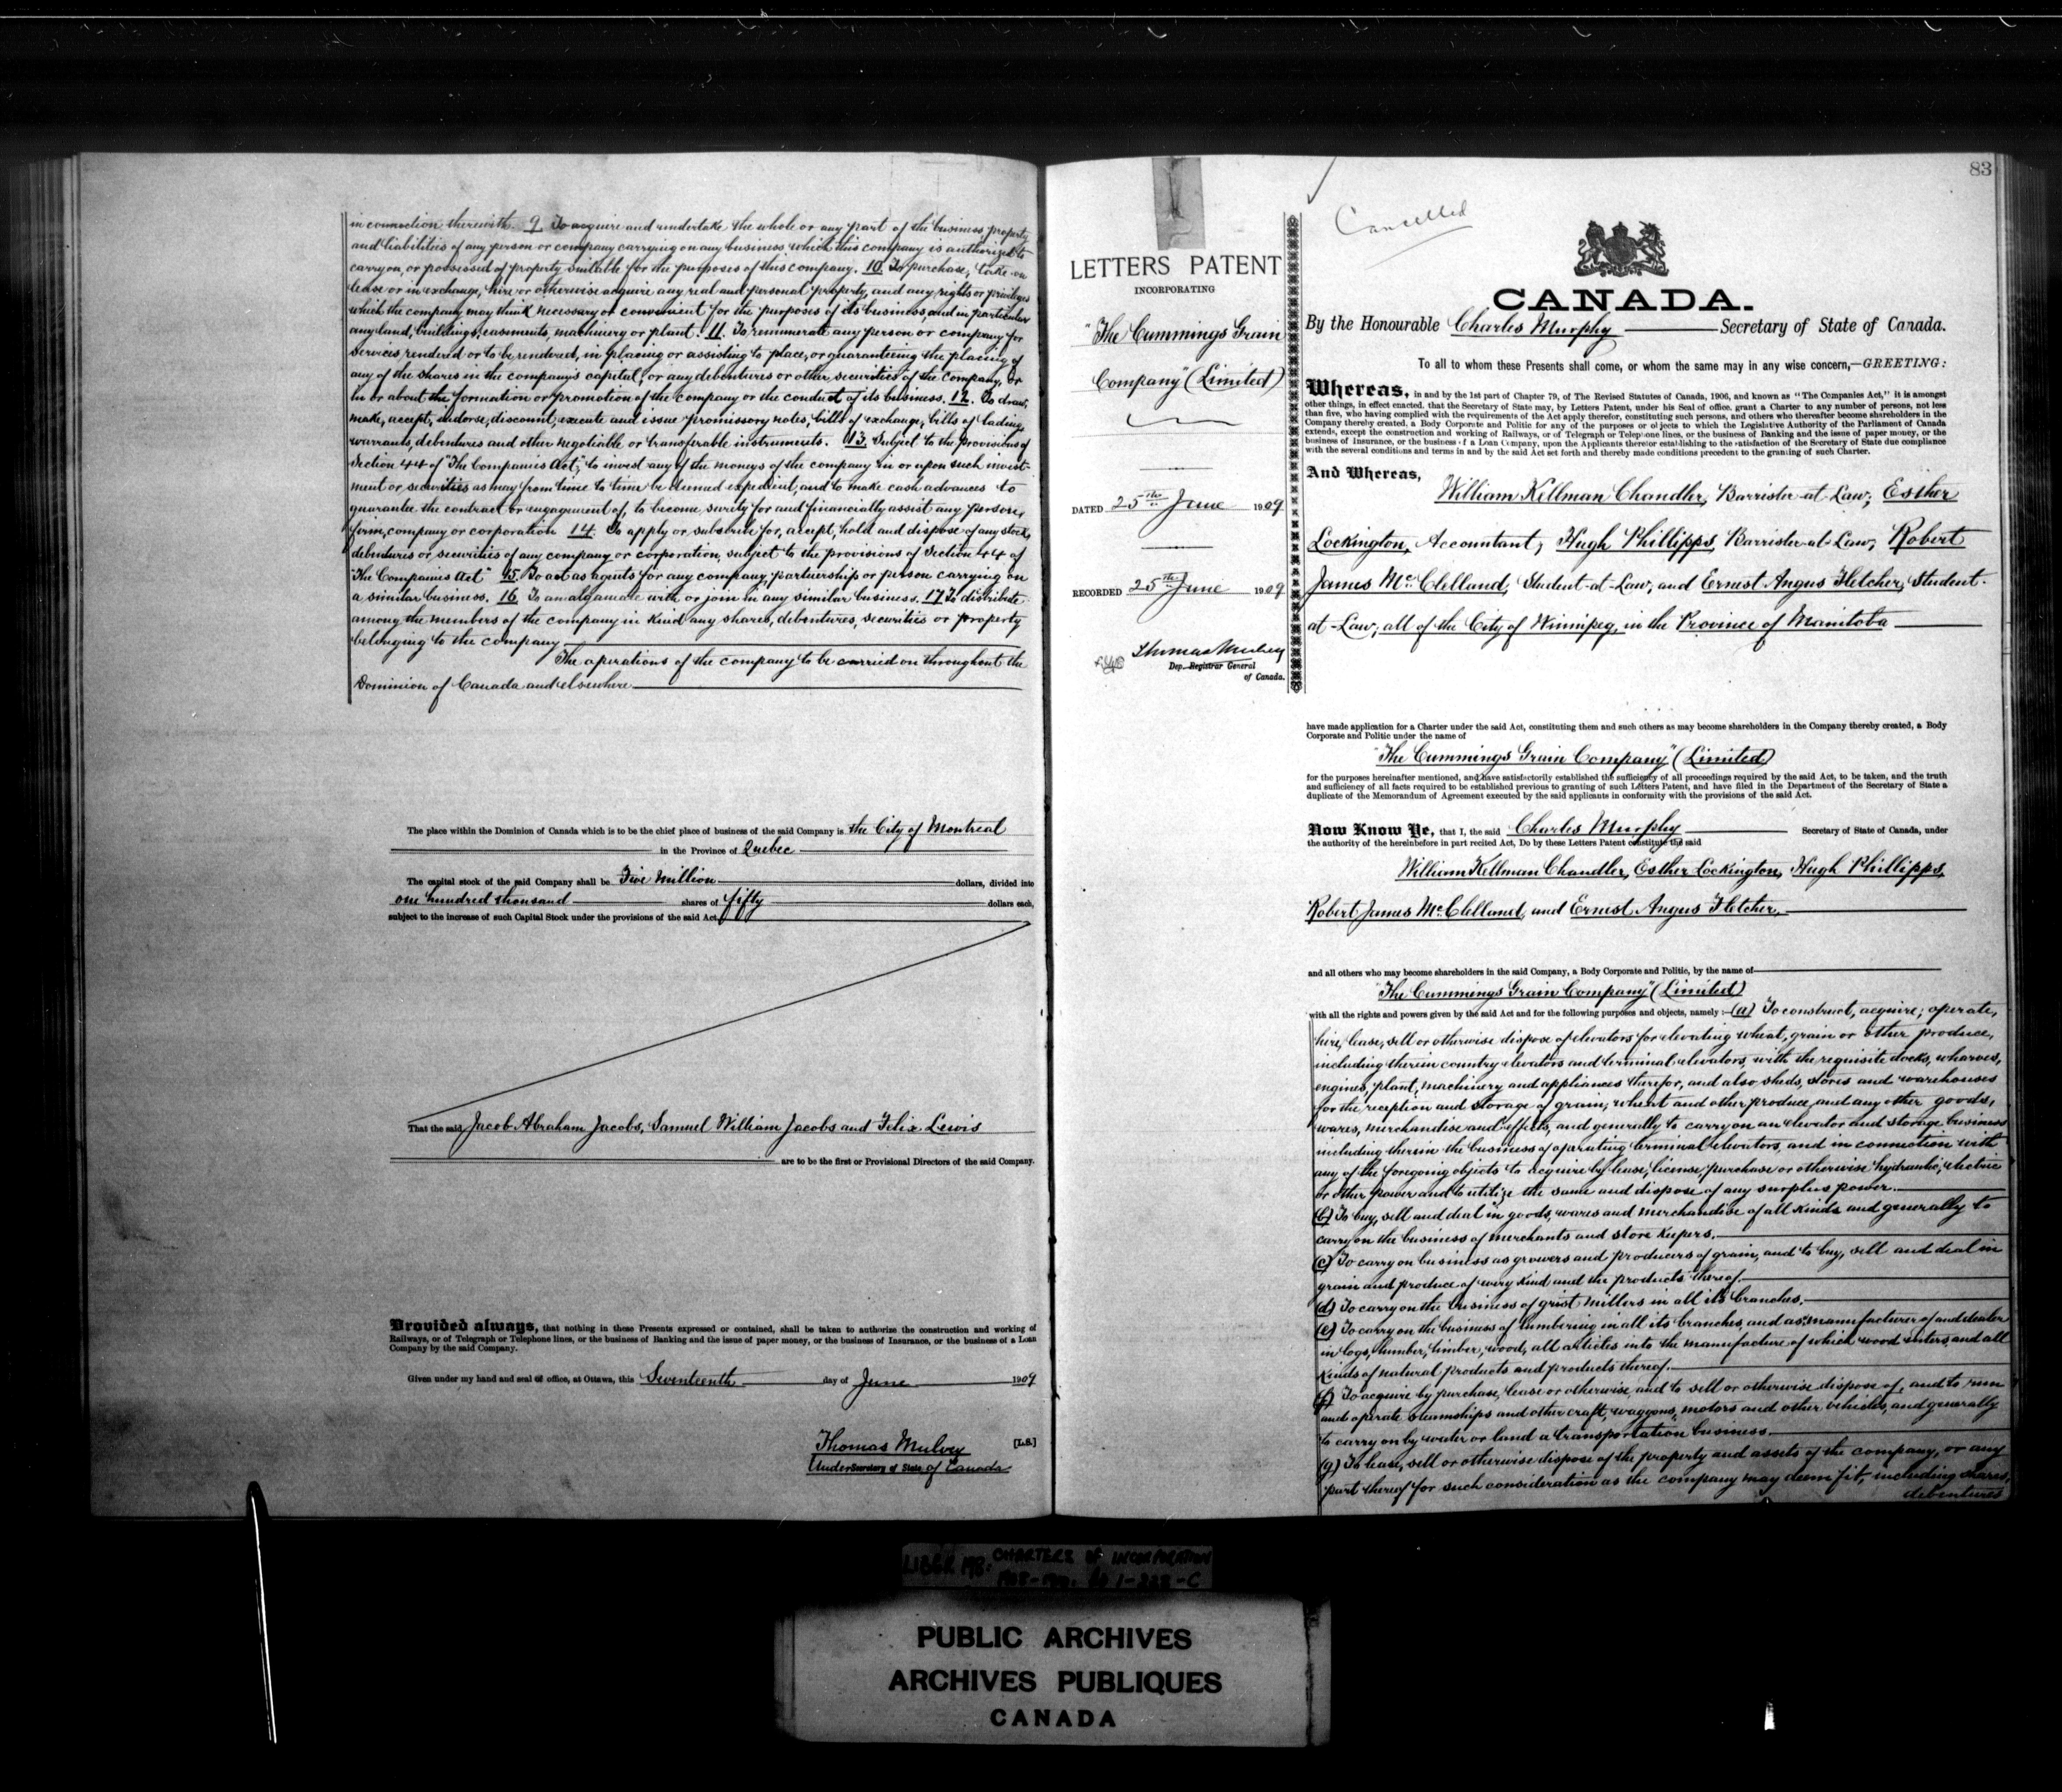 in connection therewith. 9. To acquire and undertake the whole or any part of the business, property
and liabilities of any person or company carrying on any business which this company is authorized to
carry on, or possessed of property suitable for the purposes of this company. 10. To purchase, take on
lease or in exchange, hire or otherwise acquire any real and personal property, and any rights or privileges
which the company may think necessary or convenient for the purposes of its business, and in particular
any land, buildings, easements, machinery or plant. 11. To remunerate any person or company for
services rendered or to be rendered, in placing or assisting to place, or guaranteeing the placing of
any of the shares in the company's capital, or any debentures or other securities of the company, or
in or about the formation or promotion of the company or the conduct of its business. 12. To draw,
make, accept, indorse, discount, execute and issue promissory notes, bills of exchange, bills of lading,
warrants, debentures and other negotiable or transferable instruments. 13. Subject to the provisions of
Section 44 of "The Companies Act," to invest any of the moneys of the company in or upon such invest-
ment or securities as may from time to time be deemed expedient, and to make cash advances to
guarantee the contract or engagement of, to become surety for and financially assist any person,
firm, company or corporation 14. To apply or subscribe for, accept, hold and dispose of any stock,
debentures or securities of any company or corporation, subject to the provisions of Section 44 of
"The Companies Act" 15. To act as agents for any company, partnership or person carrying on
a similar business. 16. To amalgamate with or join in any similar business. 17 To distribute
among the members of the company in kind any shares, debentures, securities or property
belonging to the company
The operations of the company to be carried on throughout the
Dominion of Canada and elsewhere
The place within the Dominion of Canada which is to be the chief place of business of the said Company is the City of Montreal
in the Province of Quebec
The capital stock of the said Company shall be Five Million dollars, divided into
one hundred thousand shares of fifty dollars each,
subject to the increase of such Capital Stock under the provisions of the said Act.
That the said Jacob Abraham Jacobs, Samuel William Jacobs and Felix Lewis
are to be the first or Provisional Directors of the said Company.
Provided always, that nothing in these Presents expressed or contained, shall be taken to authorize the construction and working of
Railways, or of Telegraph or Telephone lines, or the business of Banking and the issue of paper money, or the business of Insurance, or the business of a Loan
Company by the said Company.
Given under my hand and seal of office, at Ottawa, this Seventeenth day of June 1909
Thomas Mulvey [L.S.]
Under Secretary of State of Canada
83
Cancelled
LETTERS PATENT
INCORPORATING
"The Cummings Grain
Company" (Limited)
DATED 25th June 1909
RECORDED 25th June 1909
Thomas Mulvey
Dep. Registrar General
of Canada.
CANADA.
By the Honourable Charles Murphy Secretary of State of Canada.
To all to whom these Presents shall come, or whom the same may in any wise concern,—GREETING:
Whereas, in and by the 1st part of Chapter 79, of The Revised Statutes of Canada, 1906, and known as "The Companies Act," it is amongst
other things, in effect enacted, that the Secretary of State may, by Letters Patent, under his Seal of office, grant a Charter to any number of persons, not less
than five, who having complied with the requirements of the Act apply therefor, constituting such persons, and others who thereafter become shareholders in the
Company thereby created, a Body Corporate and Politic for any of the purposes or objects to which the Legislative Authority of the Parliament of Canada
extends, except the construction and working of Railways, or of Telegraph or Telephone lines, or the business of Banking and the issue of paper money, or the
business of Insurance, or the business of a Loan Company, upon the Applicants therefor establishing to the satisfaction of the Secretary of State due compliance
with the several conditions and terms in and by the said Act set forth and thereby made conditions precedent to the granting of such Charter.
And Whereas,
William Kellman Chandler, Barrister-at-Law; Esther
Lockington, Accountant; Hugh Phillipps, Barrister-at-Law; Robert
James McClelland, Student-at-Law; and Ernest Angus Fletcher, Student-
at-Law; all of the City of Winnipeg, in the Province of Manitoba
have made application for a Charter under the said Act, constituting them and such others as may become shareholders in the Company thereby created, a Body
Corporate and Politic under the name of
"The Cummings Grain Company" (Limited)
for the purposes hereinafter mentioned, and have satisfactorily established the sufficiency of all proceedings required by the said Act, to be taken, and the truth
and sufficiency of all facts required to be established previous to granting of such Letters Patent, and have filed in the Department of the Secretary of State a
duplicate of the Memorandum of Agreement executed by the said applicants in conformity with the provisions of the said Act.
Now Know Ye, that I, the said Charles Murphy Secretary of State of Canada, under
the authority of the hereinbefore in part recited Act, Do by these Letters Patent constitute the said
William Kellman Chandler, Esther Lockington, Hugh Phillipps,
Robert James McClelland, and Ernest Angus Fletcher,
and all others who may become shareholders in the said Company, a Body Corporate and Politic, by the name of
"The Cummings Grain Company" (Limited)
with all the rights and powers given by the said Act and for the following purposes and objects, namely :—(a) To construct, acquire, operate,
hire, lease, sell or otherwise dispose of elevators for elevating wheat, grain or other produce,
including therein country elevators and terminal elevators, with the requisite docks, wharves,
engines, plant, machinery and appliances therefor, and also sheds, stores and warehouses
for the reception and storage of grain, wheat and other produce, and any other goods,
wares, merchandise and effects, and generally to carry on an elevator and storage business
including therein the business of operating terminal elevators, and in connection with
any of the foregoing objects to acquire by lease, license, purchase or otherwise hydraulic, electric
or other power and to utilize the same and dispose of any surplus power.
(b) To buy, sell and deal in goods, wares and merchandise of all kinds and generally to
carry on the business of merchants and store keepers.
(c) To carry on business as growers and producers of grain, and to buy, sell and deal in
grain and produce of every kind and the products thereof.
(d) To carry on the business of grist millers in all its branches.
(e) To carry on the business of lumbering in all its branches, and as manufacturer of and dealer
in logs, lumber, timber, wood, all articles into the manufacture of which wood enters, and all
kinds of natural products and products thereof.
(f) To acquire by purchase, lease or otherwise and to sell or otherwise dispose of, and to run
and operate steamships and other craft, waggons, motors and other vehicles, and generally
to carry on by water or land a transportation business.
(g) To lease, sell or otherwise dispose of the property and assets of the company, or any
part thereof for such consideration as the company may deem fit, including shares,
debentures
LIBER 198. CHARTERS OF INCORPORATION
PUBLIC ARCHIVES
ARCHIVES PUBLIQUES
CANADA